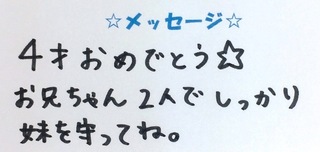 ☆メッセージ☆
4才おめでとう☆
お兄ちゃん2人でしっかり
妹を守ってね。